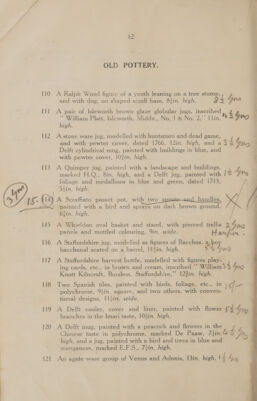 12
OLD POTTERY.
110 A Ralph Wood figure of a youth leaning on a tree stump, and with dog, on shaped scroll base, 8½in. high. 8½ gns
111 A pair of Isleworth brown glaze globular jugs, inscribed
" William Platt, Isleworth, Middx., No. 1 & No. 2," 11in.
high.
112 A stone ware jug, modelled with huntsmen and dead game,
and with pewter cover, dated 1766, 12in. high, and a
Delft cylindrical mug, painted with buildings in blue, and
with pewter cover, 10½in. high.
113 A Quimper jug, painted with a landscape and buildings,
marked H.Q., 8in. high, and a Delft jug, painted with
foliage and medallions in blue and green, dated 1713,
high.
3 gns 15.- 114 A Scraffiato posset pot, with two spouts and handles, X
painted with a bird and sprays on dark brown ground,
high.
115 A Whieldon oval basket and stand, with pierced trellis
panels and mottled colouring, 9in. wide.
116 A Staffordshire jug, modelled as figures of Bacchus, a boy
bacchanal seated on a barrel, 11½in. high.
117 A Staffordshire harvest bottle, modelled with figures play-
ing cards, etc., in brown and cream, inscribed " William
Knott Burslem, Staffordshire," 12in. high.
118 Two Spanish tiles, painted with birds, foliage, etc., in
polychrome, 9in. square, and two others, with conven-
tional designs, 11½in. wide.
119 A Delft cooler, cover and liner, painted with flower
branches in the Imari taste, 10in. high.
120 A Delft mug, painted with a peacock and flowers in the
Chinese taste in polychrome, marked De Paaw, 7in.
high, and a jug, painted with a bird and trees in blue and
manganese, marked E.F.S., 7in. high.
121 An agate ware group of Venus and Adonis, 13in. high.